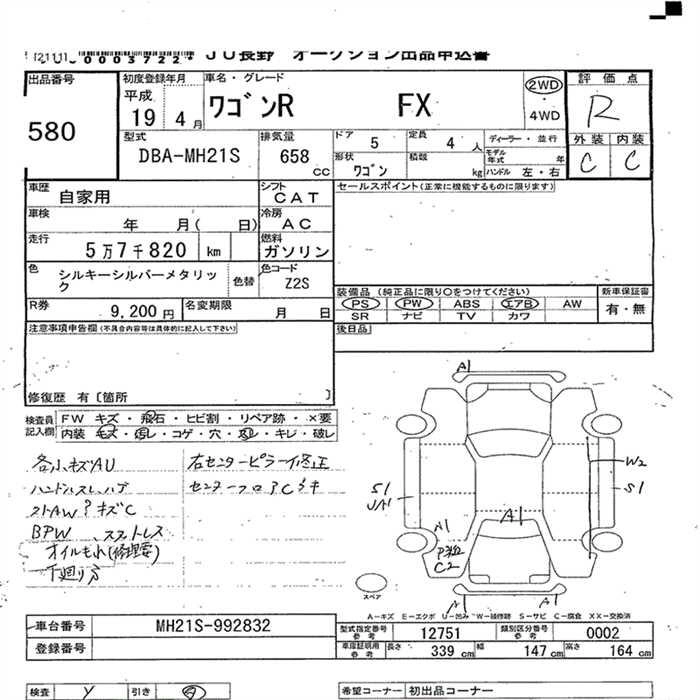 0003722 JU長野 オークション出品申込書
出品番号 初度登録年月 車名・グレード 2WD 評価点
平成 19 4月 ワゴンR FX 4WD R
580 型式 排気量 ドア 5 定員 4 人 ディーラー・並行 外装 内装
DBA-MH21S 658 cc 形状 ワゴン 積載 kg モデル年式 年 ハンドル 左・右 C C
車歴 自家用 シフト CAT セールスポイント(正常に機能するものに限ります)
車検 年 月( 日) 冷房 AC
走行 5万7千820 km 燃料 ガソリン
色 シルキーシルバーメタリック 色替 色コード Z2S
装備品(純正品に限り○をつけてください) 新車保証書
R券 9,200円 名変期限 月 日 PS PW ABS エアB AW 有・無
SR ナビ TV カワ
注意事項申告欄(不具合内容等は具体的に記入して下さい) 後日品
修復歴 有〔箇所 〕
検査員記入欄 FW キズ・飛石・ヒビ割・リペア跡・×要
内装 キズ・汚レ・コゲ・穴・スレ・キレ・破レ
各小キズAU 右センターピラー修正
ハンドルスレ
センターフロア
キズC
BPW
オイルもれ(修理要)
下廻りサ
A1
W2
S1
S1
A1
A1
C2
A1
A1
スペア
A-キズ E-エクボ U-凹み W-補修跡 S-サビ C-腐食 XX-交換済
車台番号 MH21S-992832 型式指定番号 参考 12751 類別区分番号 参考 0002
登録番号 車庫証明用 参考 長さ 339 cm 幅 147 cm 高さ 164 cm
検査 Y 引き 希望コーナー 初出品コーナー